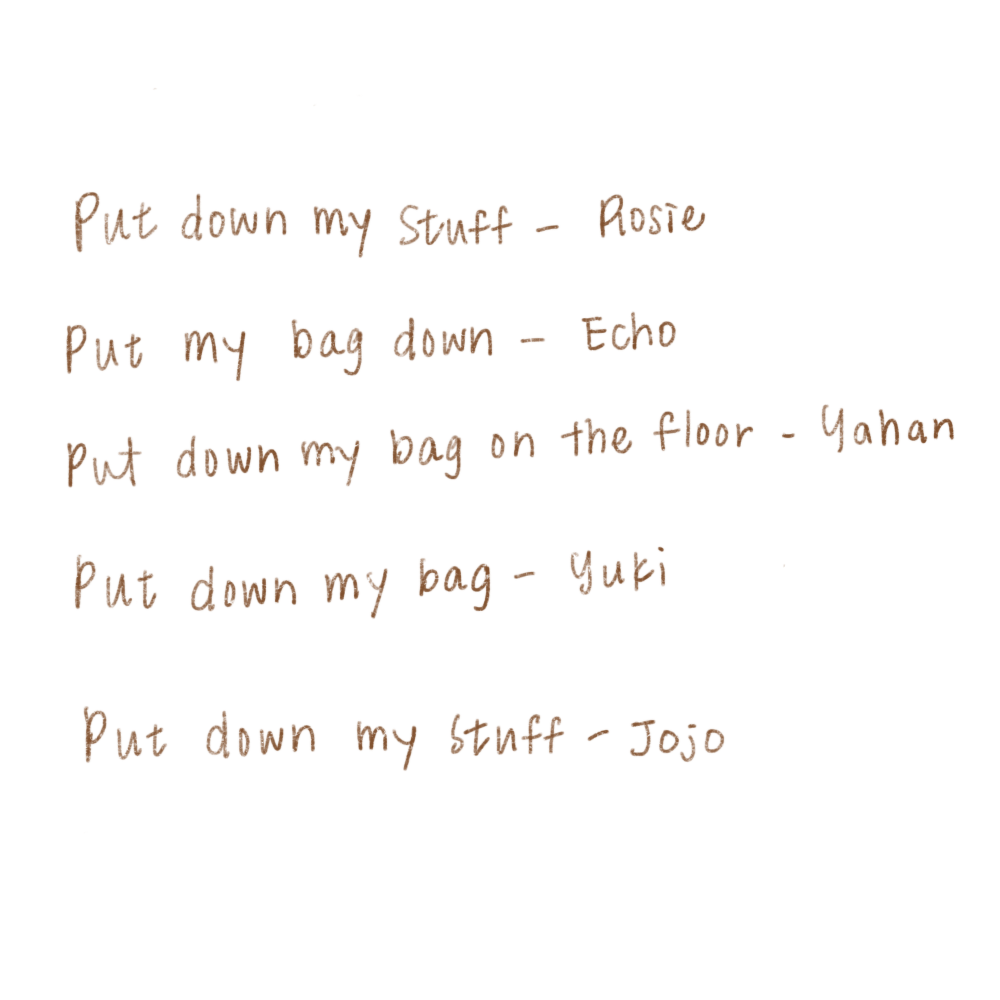 Put down my stuff - Rosie
Put my bag down - Echo
Put down my bag on the floor - Yahan
Put down my bag - Yuki
Put down my stuff - Jojo